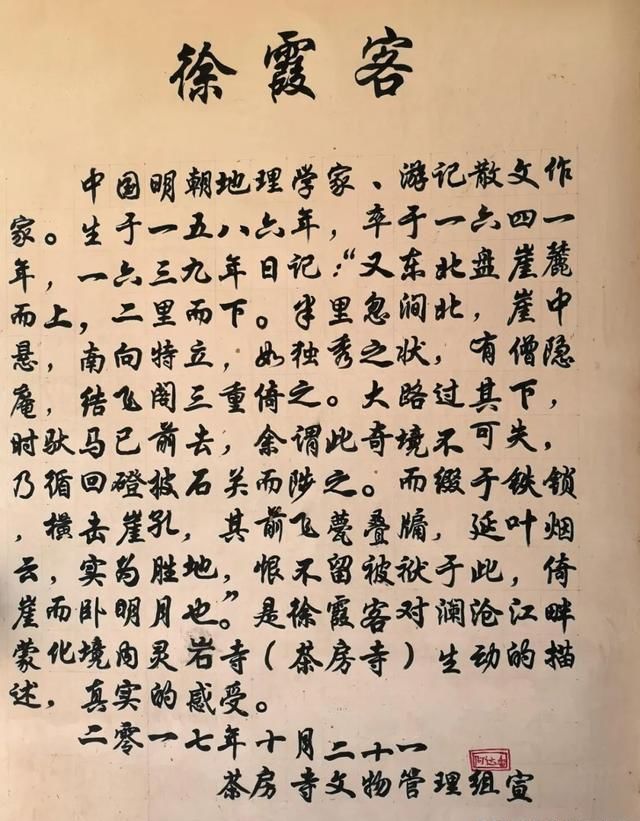 徐霞客
中国明朝地理学家、游记散文作
家。生于一五八六年，卒于一六四一
年，一六三九年日记："又东北盘崖麓
而上，二里而下。半里忽涧北，崖中
悬，南向特立，如独秀之状，有僧隐
庵，结飞阁三重倚之。大路过其下，
时驮马已前去，余谓此奇境不可失，
乃循回磴披石关而陟之。而缀于铁锁
，横击崖孔，其前飞甍叠牖，延叶烟
云，实为胜地，恨不留被袱于此，倚
崖而卧明月也。"是徐霞客对澜沧江畔
蒙化境内灵岩寺（茶房寺）生动的描
述，真实的感受。
二零一七年十月二十一
茶房寺文物管理组宣